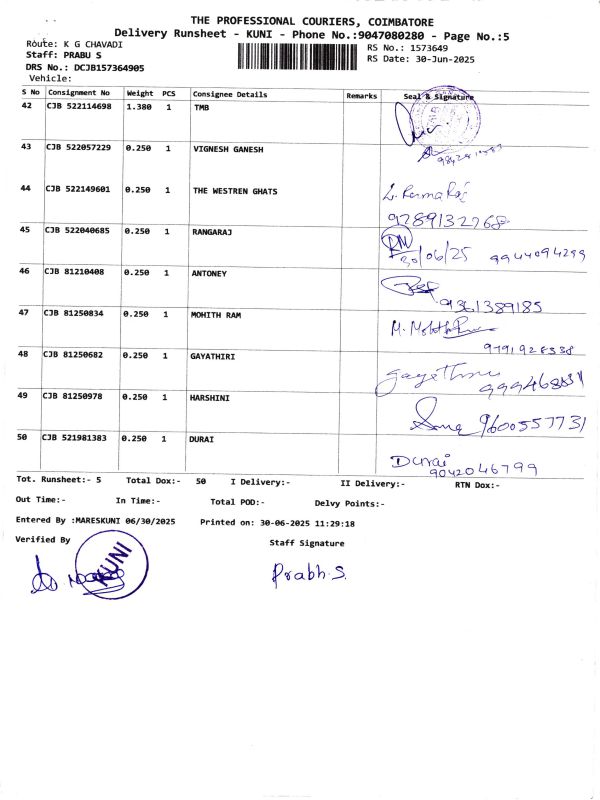 THE PROFESSIONAL COURIERS, COIMBATORE
Delivery Runsheet - KUNI - Phone No.:9047080280 - Page No.:5
Route: K G CHAVADI
RS No.: 1573649
Staff: PRABU S
RS Date: 30-Jun-2025
DRS No.: DCJB157364905
Vehicle:
S No Consignment No Weight PCS Consignee Details Remarks Seal & Signature
42 CJB 522114698 1.380 1 TMB
43 CJB 522057229 0.250 1 VIGNESH GANESH
44 CJB 522149601 0.250 1 THE WESTREN GHATS
9789132268
45 CJB 522040685 0.250 1 RANGARAJ
30/06/25 9944094299
46 CJB 81210408 0.250 1 ANTONEY
9361389185
47 CJB 81250834 0.250 1 MOHITH RAM
9791928338
48 CJB 81250682 0.250 1 GAYATHIRI
49 CJB 81250978 0.250 1 HARSHINI
9600557731
50 CJB 521981383 0.250 1 DURAI
Durai
9042046799
Tot. Runsheet:- 5 Total Dox:- 50 I Delivery:- II Delivery:- RTN Dox:-
Out Time:- In Time:- Total POD:- Delvy Points:-
Entered By :MARESKUNI 06/30/2025 Printed on: 30-06-2025 11:29:18
Verified By
Staff Signature
KUNI
Prabh.S.